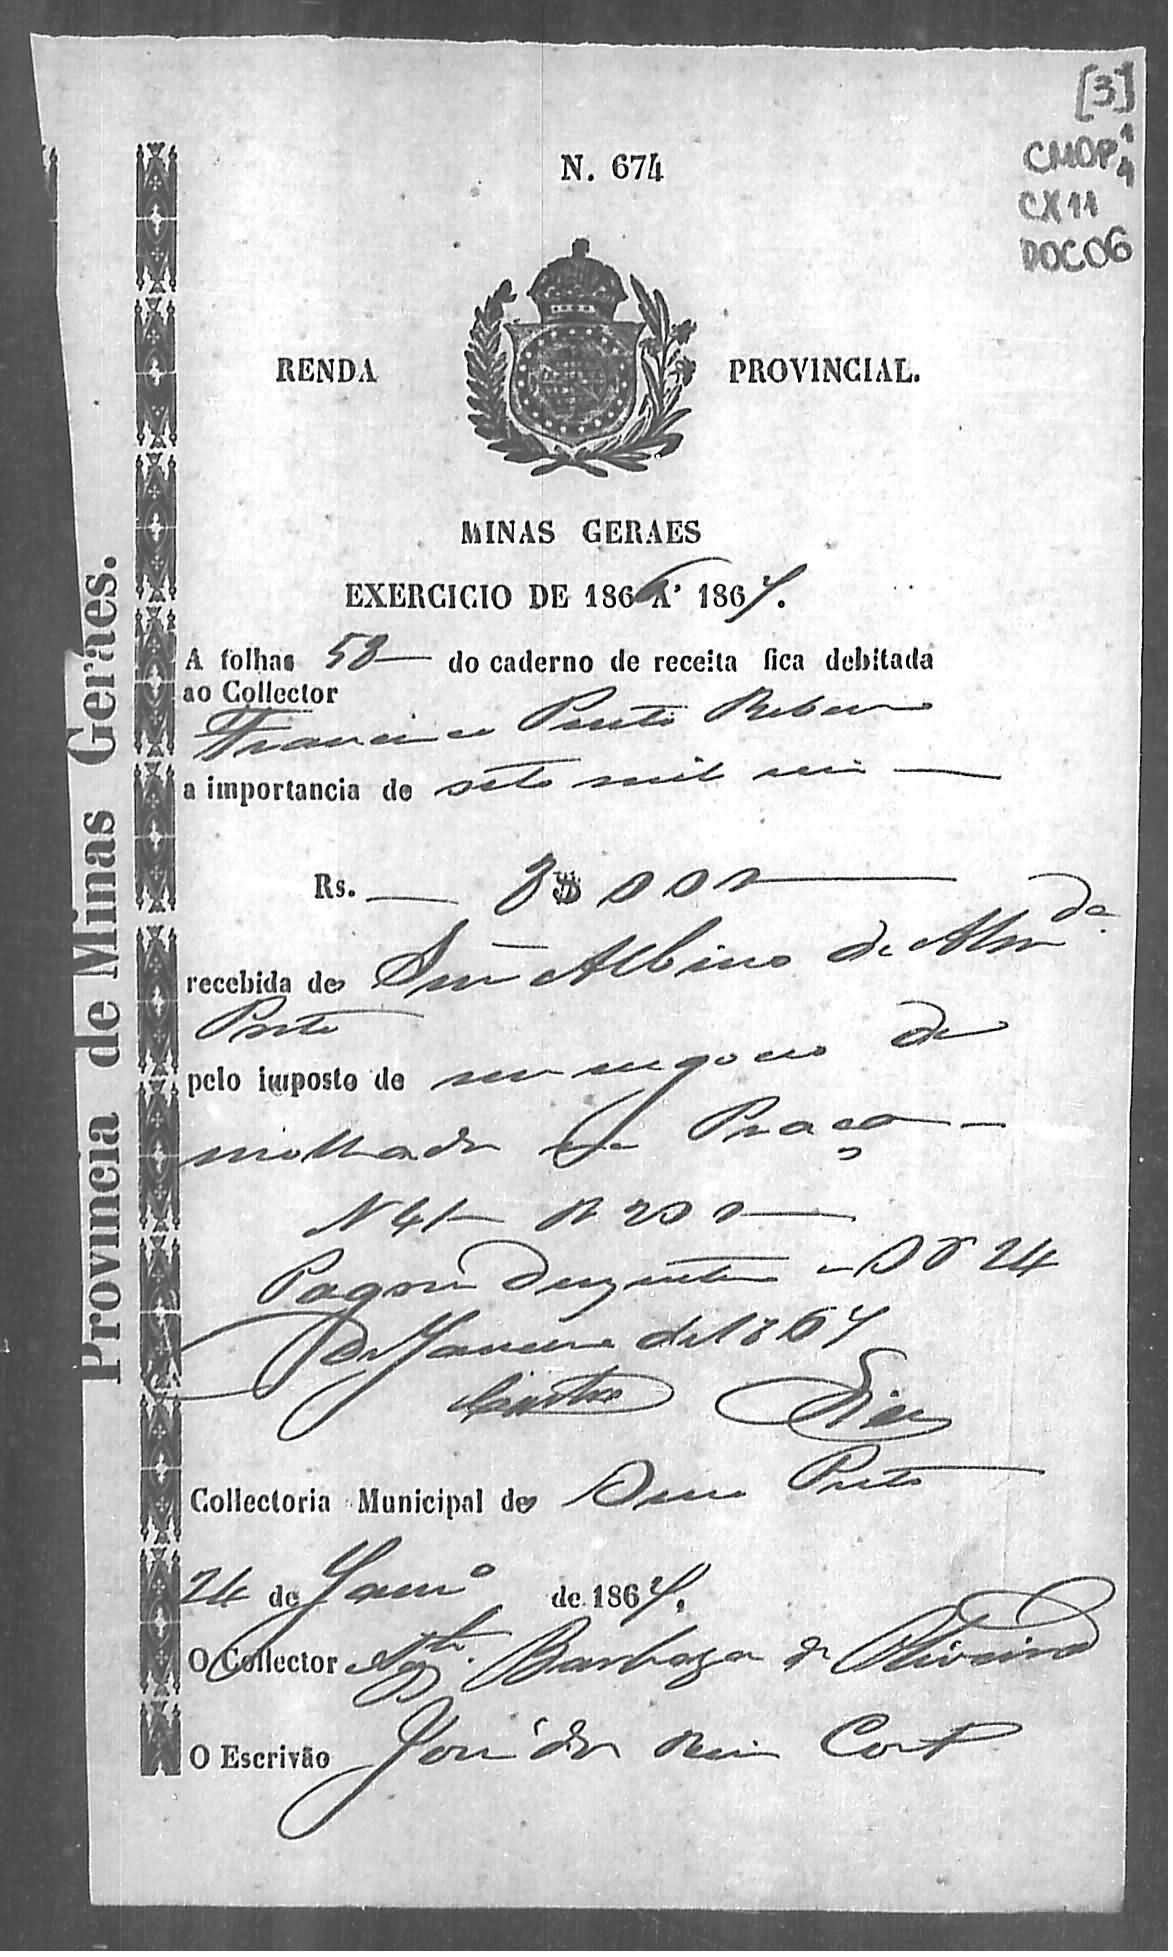 [3]
CMOP 1
4
CX 11
DOC 06
N. 674
RENDA PROVINCIAL.
MINAS GERAES
EXERCICIO DE 1866 A' 1867.
A folhas 58 do caderno de receita fica debitada
ao Collector
Francisco
a importancia de sete mil reis
Rs. $000
recebida de Albino de Almda
pelo imposto de seu negocio de
molhados na Praça
N 41 R 200
Pagou duzentos 24
de Janeiro de 1867
Castro Dias
Collectoria Municipal de Ouro Preto
24 de Janro de 1867.
O Collector Barboza de Oliveira
O Escrivão José dos Reis
Provincia de Minas Geráes.